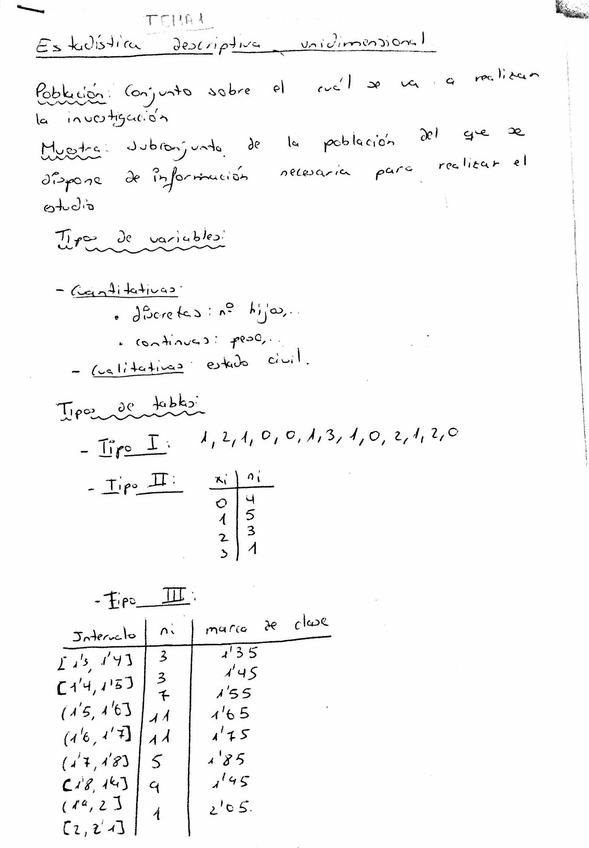 TEMA 1
Estadística descriptiva unidimensional
Población: Conjunto sobre el cuál se va a realizar
la investigación
Muestra: subconjunto de la población del que se
dispone de información necesaria para realizar el
estudio
Tipos de variables:
- Cuantitativas:
• discretas: nº hijos,..
• continuas: peso,..
- Cualitativas: estado civil.
Tipos de tablas:
- Tipo I: 1, 2, 1, 0, 0, 1, 3, 1, 0, 2, 1, 2, 0
- Tipo II: xi ni
0 4
1 5
2 3
3 1
- Tipo III:
Intervalo ni marca de clase
[1'3, 1'4] 3 1'35
[1'4, 1'5] 3 1'45
(1'5, 1'6] 7 1'55
(1'6, 1'7] 11 1'65
(1'7, 1'8] 11 1'75
[1'8, 5 1'85
(1'9, 2] 9 1'95
[2, 2'1] 1 2'05